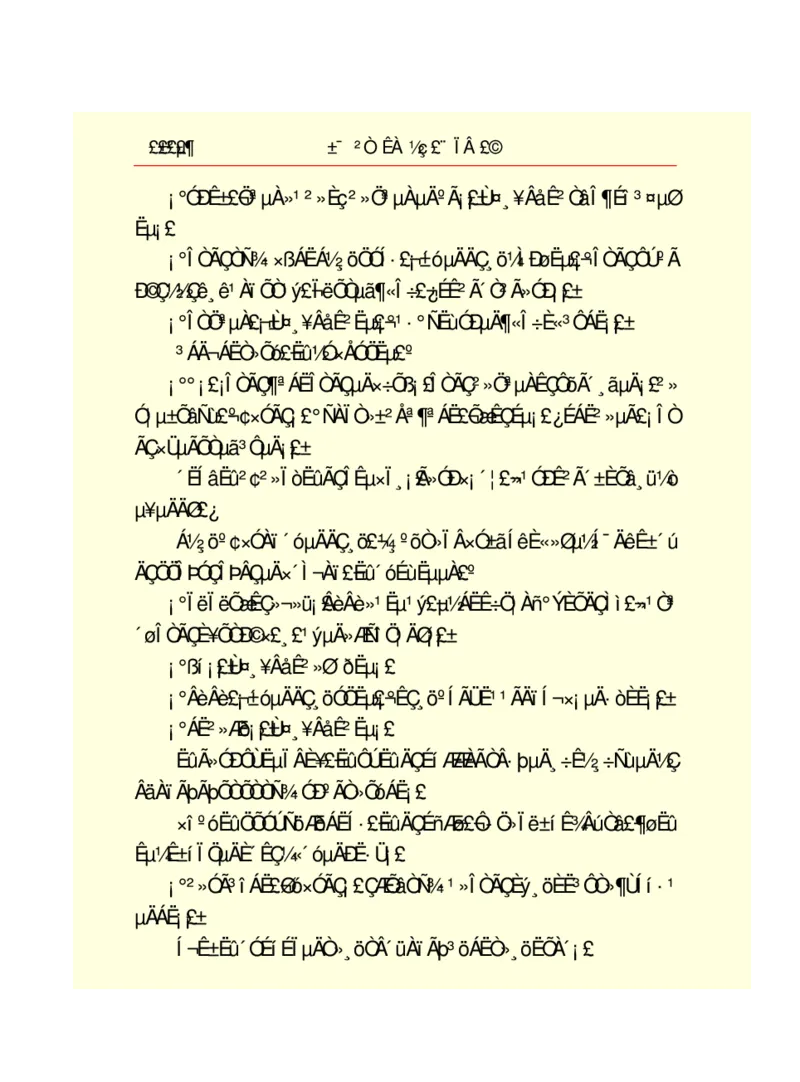 ££££µ¶ ±¯ ²Ò ÊÀ ½ç £¨ Ï Â £©
¡°ÓÐÊ±£¬Öª µÀ»¹ ² »Èç ² »Öª µÀµÄº Ã¡£±Ù¤ ¸ ¥ÂåÊ² ÒâÎ ¶ Éî ³ ¤ µØ
Ëµ¡ £
¡°Î ÒÃÇÒÑ¾ ­×ßÁËÁ½¸ öÖÓÍ ·£¬¡±óµÄÄÇ¸ ö¼Ì ÐøËµ£¬°Î ÒÃÇÔÚº Ã
Ð©Ç½½Çê ¸ ê¹ ÀïÕÒ ý£¬ÈëÕÒµã¶«Î ÷£¿ÉÊ² Ã´ Òª Ã»ÓÐ¡£±
¡°Î ÒÖªµÀ£¬±Ù¤ ¸ ¥ÂåÊ² Ëµ£¬°¹ ·°ÑËùÓÐµÄ¶«Î ÷È«³ ÔÁË¡£±
³ ÁÄ¬ÁËÒ»Õó£¬Ëû½Ó×ÅÓÖËµ£º
¡°° ¡ £¡Î ÒÃÇ¶ª ÁËÎ ÒÃÇµÄ×÷Õß¡£Î ÒÃÇ² »ÖªµÀÊÇÔõÃ´ ¸ ãµÄ¡£² »
Ó¦ µ±ÕâÑù£º¢×ÓÃÇ¡ £°ÑÀÏÒ»±² Åª ¶ª ÁË£¬ÕæÊÇÉµ¡ £ ¿ÉÁË² »µÃ£¡Î Ò
ÃÇ×ÜµÃÕÒµã³ ÔµÄ¡£±
´ËÍ âËû² ¢² »Ï òËûÃÇÎ Êµ×Ï ¸ ¡£Ã»ÓÐ×¡ ´¦ £¬¹ ÓÐÊ² Ã´ ±ÈÕâ¸ ü¼ò
µ¥µÄÄØ£ ¿
Á½¸ öº ¢×ÓÀï´ óµÄÄÇ¸ ö£¬¼¸ ºõÒ»Ï Â×Ó±ãÍ êÈ«»Øµ½Í ¯ ÄêÊ± ´ú
ÄÇÖÖÎ ÞÓÇÎ ÞÂÇµÄ×´ Ì ¬Àï£¬Ëû´ óÉùËµµÀ£º
¡°Ï ëÏ ëÕæÊÇ»¬»ü¡£ÂèÂè»¹ Ëµ¹ ý£¬µ½ÁËÊ÷Ö¦ Àñ°ÝÈÕÄÇÌ ì £¬¹ Òª
´øÎ ÒÃÇÈ¥ÕÒÐ©×£ ¸ £¹ýµÄ»ÆÑî Ö¦ ÄØ¡£±
¡°ßí¡£±Ù¤ ¸ ¥ÂåÊ² »Ø´ðËµ¡ £
¡°ÂèÂè£¬¡±óµÄÄÇ¸ öÓÖËµ£¬°ÊÇ¸ öº Í ÃÜË¹¹ ÃÄïÍ ¬×¡µÄ· òÈË¡£±
¡°ÁË² »Æð¡£±Ù¤ ¸ ¥ÂåÊ² Ëµ¡ £
ËûÃ»ÓÐÔÙËµÏ ÂÈ¥£¬ËûÔÚËûÄÇÉí ÆÆÆÀÃÒÂ·þµÄ¸ ÷Ê½¸ ÷ÑùµÄ½Ç
ÂäÀï ÃþÃþÕÒÕÒÒÑ¾ ­ÓÐº ÃÒ»ÕóÁË¡ £
×î º óËûÖÕÓÚÑöÆðÁËÍ ·£¬ËûÄÇÉñÆø£¬Ô­ Ö»Ï ë±í Ê¾ÂúÒâ£¬¶øËû
Êµ¼ÊÉ±í Ï ÖµÄÈ´ ÊÇ¼«´ óµÄÐË· Ü¡ £
¡°² »ÓÃ³ î ÁË£¬º¢×ÓÃÇ¡ £ ÇÆÕâÒÑ¾ ­¹ »Î ÒÃÇÈý¸ öÈË³ ÔÒ»¶ÙÍí · ¹
µÄÁË¡£±
Í ¬Ê±Ëû´ ÓÉí ÉÏ µÄÒ»¸ öÒÂ´üÀï Ãþ³ öÁËÒ»¸ öËÕÀ´ ¡ £